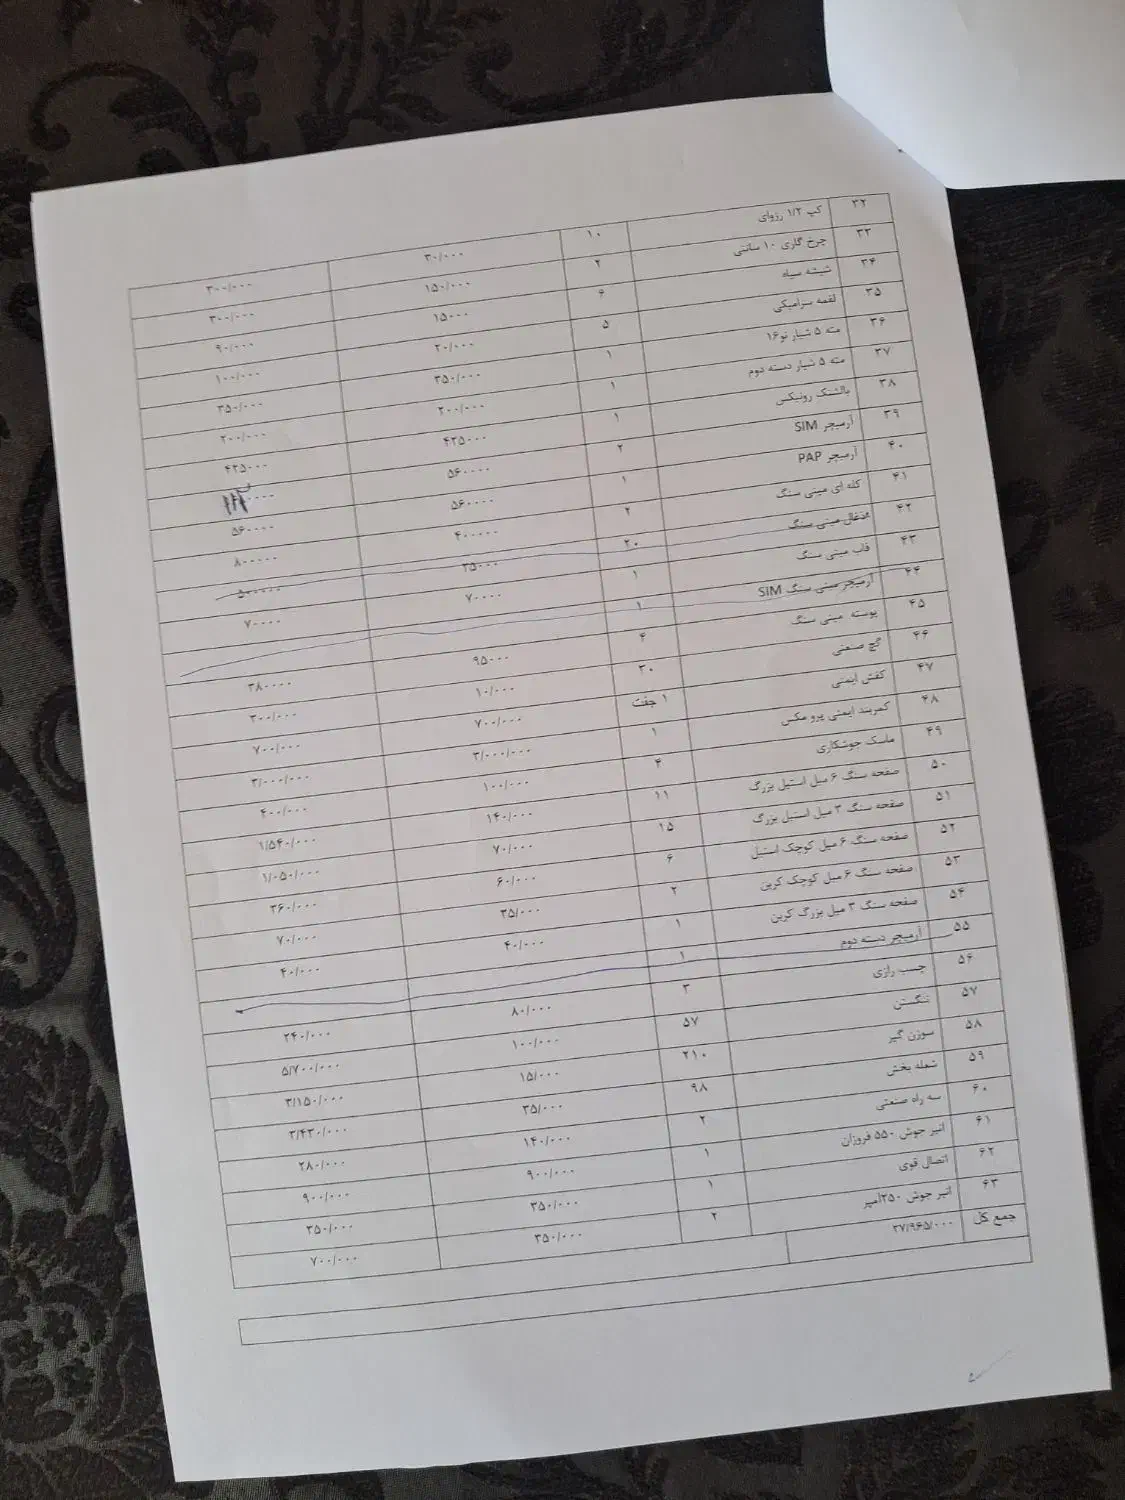 ۳۲ کپ ۱/۲ رزوای ۱۰ ۳۰/۰۰۰ ۳۰۰/۰۰۰
۳۳ چرخ گاری ۱۰ سانتی ۲ ۱۵۰/۰۰۰ ۳۰۰/۰۰۰
۳۴ شیشه سیاه ۶ ۱۵۰۰۰ ۹۰/۰۰۰
۳۵ لقمه سرامیکی ۵ ۲۰/۰۰۰ ۱۰۰/۰۰۰
۳۶ مته ۵ شیار نو۱۶ ۱ ۳۵۰/۰۰۰ ۳۵۰/۰۰۰
۳۷ مته ۵ شیار دسته دوم ۱ ۲۰۰/۰۰۰ ۲۰۰/۰۰۰
۳۸ بالشتک رونیکس ۱ ۴۲۵۰۰۰ ۴۲۵۰۰۰
۳۹ آرمیچر SIM ۲ ۵۶۰۰۰۰
۴۰ آرمیچر PAP ۱ ۵۶۰۰۰۰ ۵۶۰۰۰۰
۴۱ کله ای مینی سنگ ۲ ۴۰۰۰۰۰ ۸۰۰۰۰۰
۴۲ مینی سنگ ۲۰ ۲۵۰۰۰ ۵۰۰۰۰۰
۴۳ قاب مینی سنگ ۱ ۷۰۰۰۰ ۷۰۰۰۰
۴۴ آرمیچر مینی سنگ SIM ۱
۴۵ پوسته مینی سنگ ۴ ۹۵۰۰۰ ۳۸۰۰۰۰
۴۶ گچ صنعتی ۳۰ ۱۰/۰۰۰ ۳۰۰/۰۰۰
۴۷ کفش ایمنی ۱ جفت ۷۰۰/۰۰۰ ۷۰۰/۰۰۰
۴۸ کمربند ایمنی پرو مکس ۱ ۳/۰۰۰/۰۰۰ ۳/۰۰۰/۰۰۰
۴۹ ماسک جوشکاری ۴ ۱۰۰/۰۰۰ ۴۰۰/۰۰۰
۵۰ صفحه سنگ ۶ میل استیل بزرگ ۱۱ ۱۴۰/۰۰۰ ۱/۵۴۰/۰۰۰
۵۱ صفحه سنگ ۳ میل استیل بزرگ ۱۵ ۷۰/۰۰۰ ۱/۰۵۰/۰۰۰
۵۲ صفحه سنگ ۶ میل کوچک استیل ۶ ۶۰/۰۰۰ ۳۶۰/۰۰۰
۵۳ صفحه سنگ ۶ میل کوچک کربن ۲ ۳۵/۰۰۰ ۷۰/۰۰۰
۵۴ صفحه سنگ ۳ میل بزرگ کربن ۱ ۴۰/۰۰۰ ۴۰/۰۰۰
۵۵ آرمیچر دسته دوم ۱
۵۶ چسب رازی ۳ ۸۰/۰۰۰ ۲۴۰/۰۰۰
۵۷ تنگستن ۵۷ ۱۰۰/۰۰۰ ۵/۷۰۰/۰۰۰
۵۸ سوزن گیر ۲۱۰ ۱۵/۰۰۰ ۳/۱۵۰/۰۰۰
۵۹ شعله پخش ۹۸ ۳۵/۰۰۰ ۳/۴۳۰/۰۰۰
۶۰ سه راه صنعتی ۲ ۱۴۰/۰۰۰ ۲۸۰/۰۰۰
۶۱ انبر جوش ۵۵۰ فروزان ۱ ۹۰۰/۰۰۰ ۹۰۰/۰۰۰
۶۲ اتصال قوی ۱ ۳۵۰/۰۰۰ ۳۵۰/۰۰۰
۶۳ انبر جوش ۲۵۰امپر ۲ ۳۵۰/۰۰۰ ۷۰۰/۰۰۰
جمع کل ۲۷/۹۶۵/۰۰۰